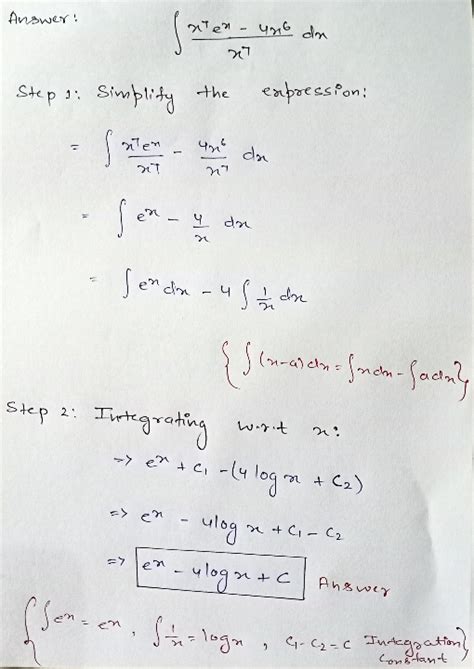 Answer: ∫ (x⁷eˣ - 4x⁶)/x⁷ dx
Step 1: Simplify the expression:
= ∫ x⁷eˣ/x⁷ - 4x⁶/x⁷ dx
= ∫ eˣ - 4/x dx
= ∫ eˣ dx - 4 ∫ 1/x dx
{ ∫ (x-a) dx = ∫ x dx - ∫ a dx }
Step 2: Integrating w.r.t x:
=> eˣ + C₁ - (4 log x + C₂)
=> eˣ - 4 log x + C₁ - C₂
=> eˣ - 4 log x + C Answer
{ ∫ eˣ = eˣ, ∫ 1/x = log x, C₁-C₂=C Integration }
Constant